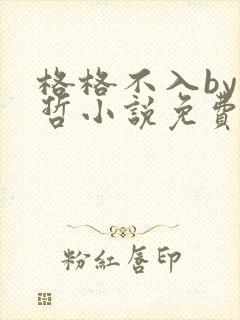 格格不入by
哲小說免費
粉紅唇印